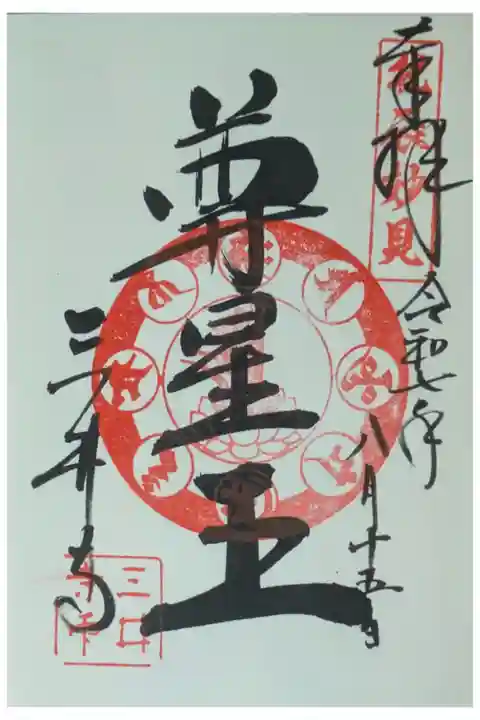 奉拝
妙見
令和七年八月十五日
尊星王
三井寺
三井
寺印